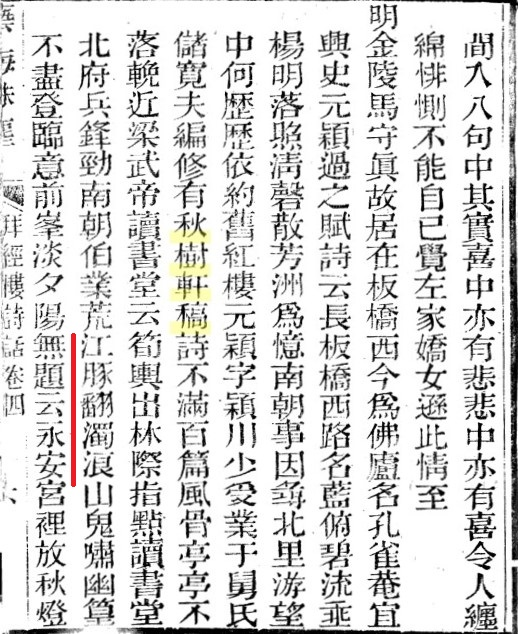 間入八句中其實喜中亦有悲悲中亦有喜令人纏
綿悱惻不能自己覺左家嬌女遜此情至
明金陵馬守眞故居在板橋西今爲佛廬名孔雀菴宜
興史元穎過之賦詩云長板橋西路名藍俯碧流垂
楊明落照清磬散芳洲爲憶南朝事因尋北里游望
中何歷歷依約舊紅樓元穎字穎川少受業于舅氏
儲寬夫編修有秋樹軒稿詩不滿百篇風骨亭亭不
落輓近梁武帝讀書堂云筍輿出林際指點讀書堂
北府兵鋒勁南朝伯業荒江豚翻濁浪山鬼嘯幽篁
不盡登臨意前峯淡夕陽無題云永安宮裡放秋燈
拜經樓詩話卷四